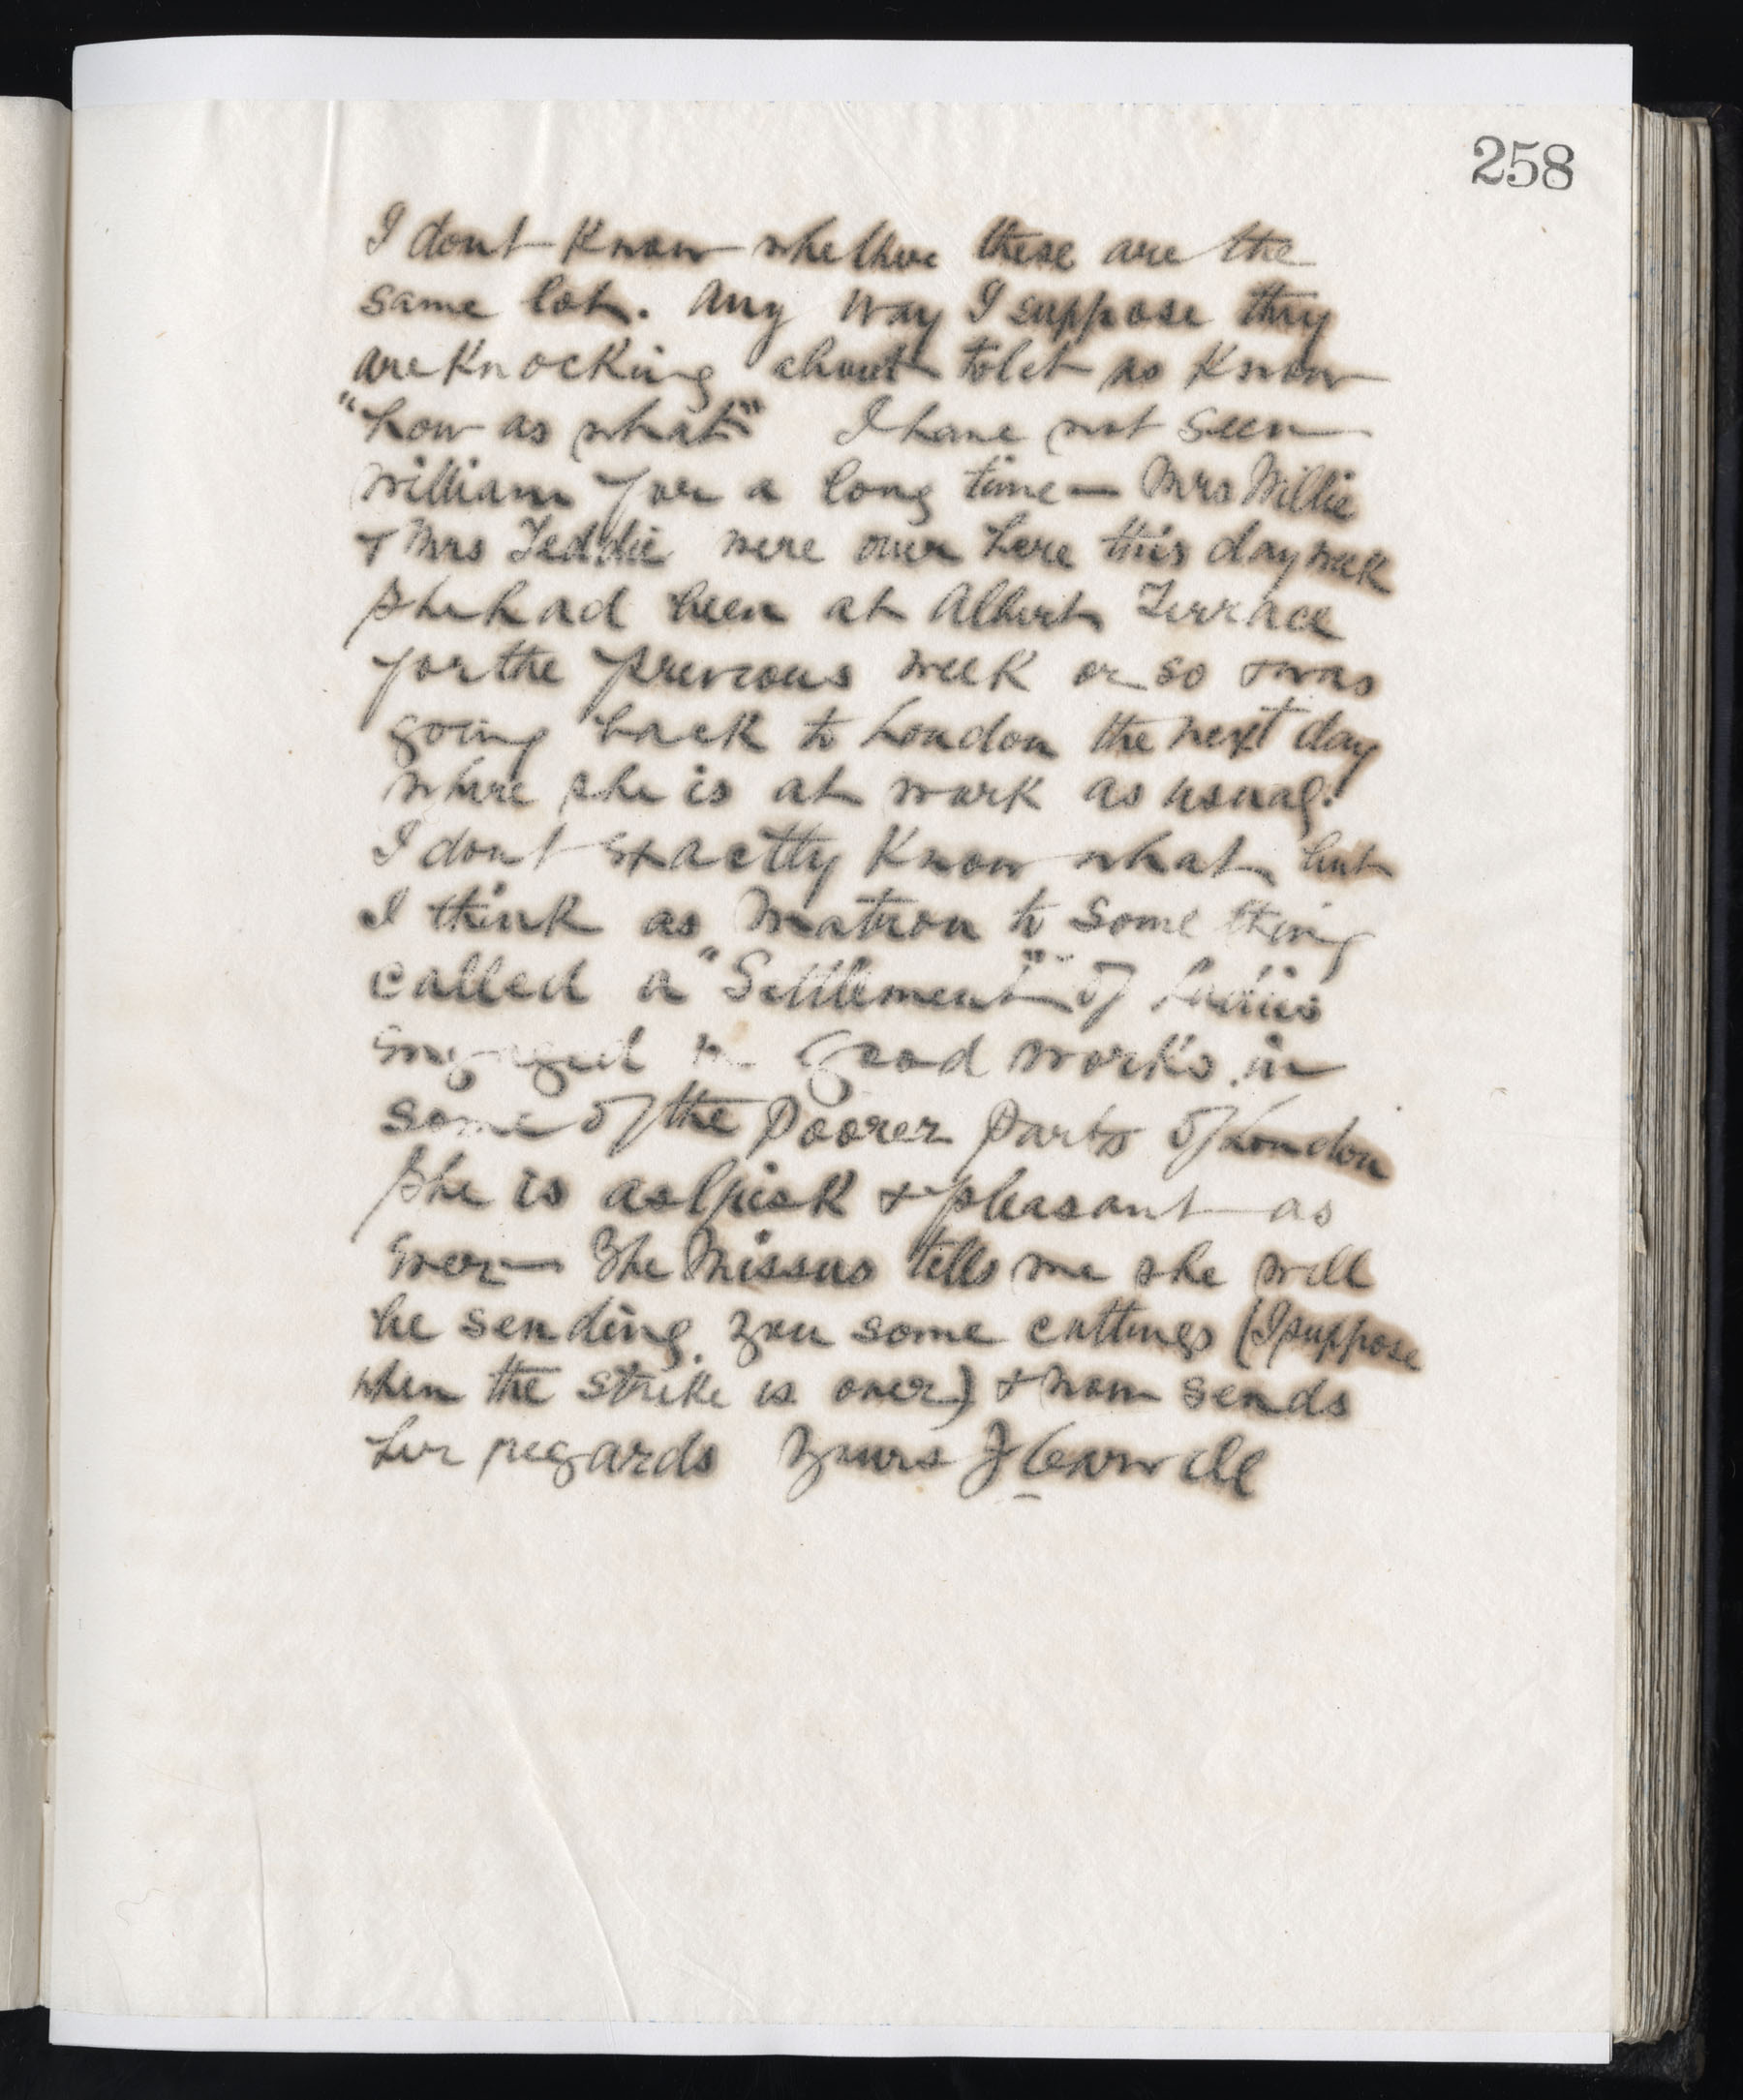 258
I dont Know whether these are the
same lot. Any way I suppose they
are Knocking about to let as Know
"how as what" I have not seen
William for a long time — Mrs Willie
+ Mrs Teddie were over here this day week
She had been at Albert Terrace
for the previous week or so + was
going back to London the next day
where she is at work as usual.
I dont exactly Know what but
I think as Matron to some thing
called a "Settlement" of Ladies
engaged in good works in
some of the Poorer Parts of London
She is as brisk + pleasant as
ever — The Missus tells me she will
be sending you some cuttings (I suppose
when the strike is over) + now sends
her regards Yours